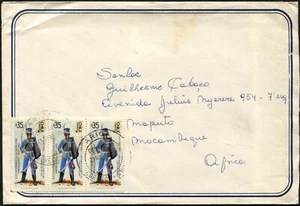 Senhor
Guilherme Cabaço
Avenida Julius Nyerere 954 - 7º
Maputo
Mocambique
Africa
35 35 35